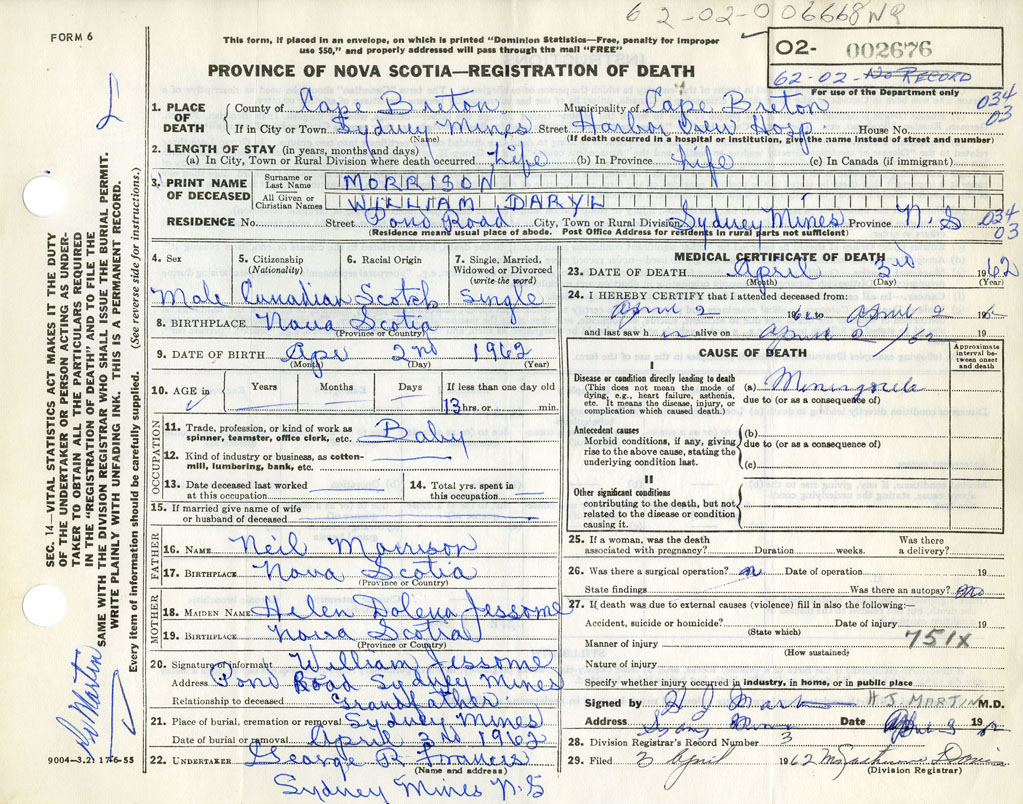 62-02-006668 NR
FORM 6
This form, if placed in an envelope, on which is printed "Dominion Statistics—Free, penalty for improper
use $50," and properly addressed will pass through the mail "FREE"
02- 002676
62-02- No RECORD
For use of the Department only
PROVINCE OF NOVA SCOTIA—REGISTRATION OF DEATH
034
03
1. PLACE OF DEATH County of Cape Breton Municipality of Cape Breton
If in City or Town Sydney Mines Street Harbor View Hosp House No.
(Name) (If death occurred in a hospital or institution, give the name instead of street and number)
2. LENGTH OF STAY (in years, months and days)
(a) In City, Town or Rural Division where death occurred Life (b) In Province Life (c) In Canada (if immigrant)
3. PRINT NAME OF DECEASED
Surname or Last Name MORRISON
All Given or Christian Names WILLIAM DARYL
RESIDENCE No. Street Pond Road City, Town or Rural Division Sydney Mines Province N.S
034
03
(Residence means usual place of abode. Post Office Address for residents in rural parts not sufficient)
4. Sex 5. Citizenship (Nationality) 6. Racial Origin 7. Single, Married, Widowed or Divorced (write the word)
Male Canadian Scotch Single
8. BIRTHPLACE Nova Scotia
(Province or Country)
9. DATE OF BIRTH Apr 2nd 1962
(Month) (Day) (Year)
10. AGE in Years Months Days If less than one day old
13 hrs. or min.
OCCUPATION
11. Trade, profession, or kind of work as
spinner, teamster, office clerk, etc. Baby
12. Kind of industry or business, as cotton-
mill, lumbering, bank, etc.
13. Date deceased last worked at this occupation
14. Total yrs. spent in this occupation
15. If married give name of wife
or husband of deceased
FATHER
16. NAME Neil Morrison
17. BIRTHPLACE Nova Scotia
(Province or Country)
MOTHER
18. MAIDEN NAME Helen Dolena Jessome
19. BIRTHPLACE Nova Scotia
(Province or Country)
20. Signature of informant William Jessome
Address Pond Road Sydney Mines
Relationship to deceased Grandfather
21. Place of burial, cremation or removal Sydney Mines
Date of burial or removal April 3rd 1962
22. UNDERTAKER George R Francis
(Name and address)
Sydney Mines N.S
MEDICAL CERTIFICATE OF DEATH
23. DATE OF DEATH April 3rd 1962
(Month) (Day) (Year)
24. I HEREBY CERTIFY that I attended deceased from:
April 2 1962 to April 2 1962
and last saw h im alive on April 2 /62 19
CAUSE OF DEATH
Approximate interval between onset and death
I
Disease or condition directly leading to death
(This does not mean the mode of
dying, e.g., heart failure, asthenia,
etc. It means the disease, injury, or
complication which caused death.)
(a) Meningocele
due to (or as a consequence of)
Antecedent causes
Morbid conditions, if any, giving
rise to the above cause, stating the
underlying condition last.
(b)
due to (or as a consequence of)
(c)
II
Other significant conditions
contributing to the death, but not
related to the disease or condition
causing it.
25. If a woman, was the death
associated with pregnancy? Duration weeks. Was there a delivery?
26. Was there a surgical operation? no Date of operation 19
State findings Was there an autopsy? no
27. If death was due to external causes (violence) fill in also the following:—
Accident, suicide or homicide? Date of injury 19
(State which)
Manner of injury 751X
(How sustained)
Nature of injury
Specify whether injury occurred in industry, in home, or in public place
Signed by H J Martin H.J. MARTIN M.D.
Address Sydney Mines Date April 3 1962
28. Division Registrar's Record Number 3
29. Filed 3 April 1962 Davis
(Division Registrar)
SEC. 14—VITAL STATISTICS ACT MAKES IT THE DUTY
OF THE UNDERTAKER OR PERSON ACTING AS UNDER-
TAKER TO OBTAIN ALL THE PARTICULARS REQUIRED
IN THE "REGISTRATION OF DEATH" AND TO FILE THE
SAME WITH THE DIVISION REGISTRAR WHO SHALL ISSUE THE BURIAL PERMIT.
WRITE PLAINLY WITH UNFADING INK. THIS IS A PERMANENT RECORD.
Every item of information should be carefully supplied. (See reverse side for instructions.)
Dr Martin
9004—3.2) 17-6-55